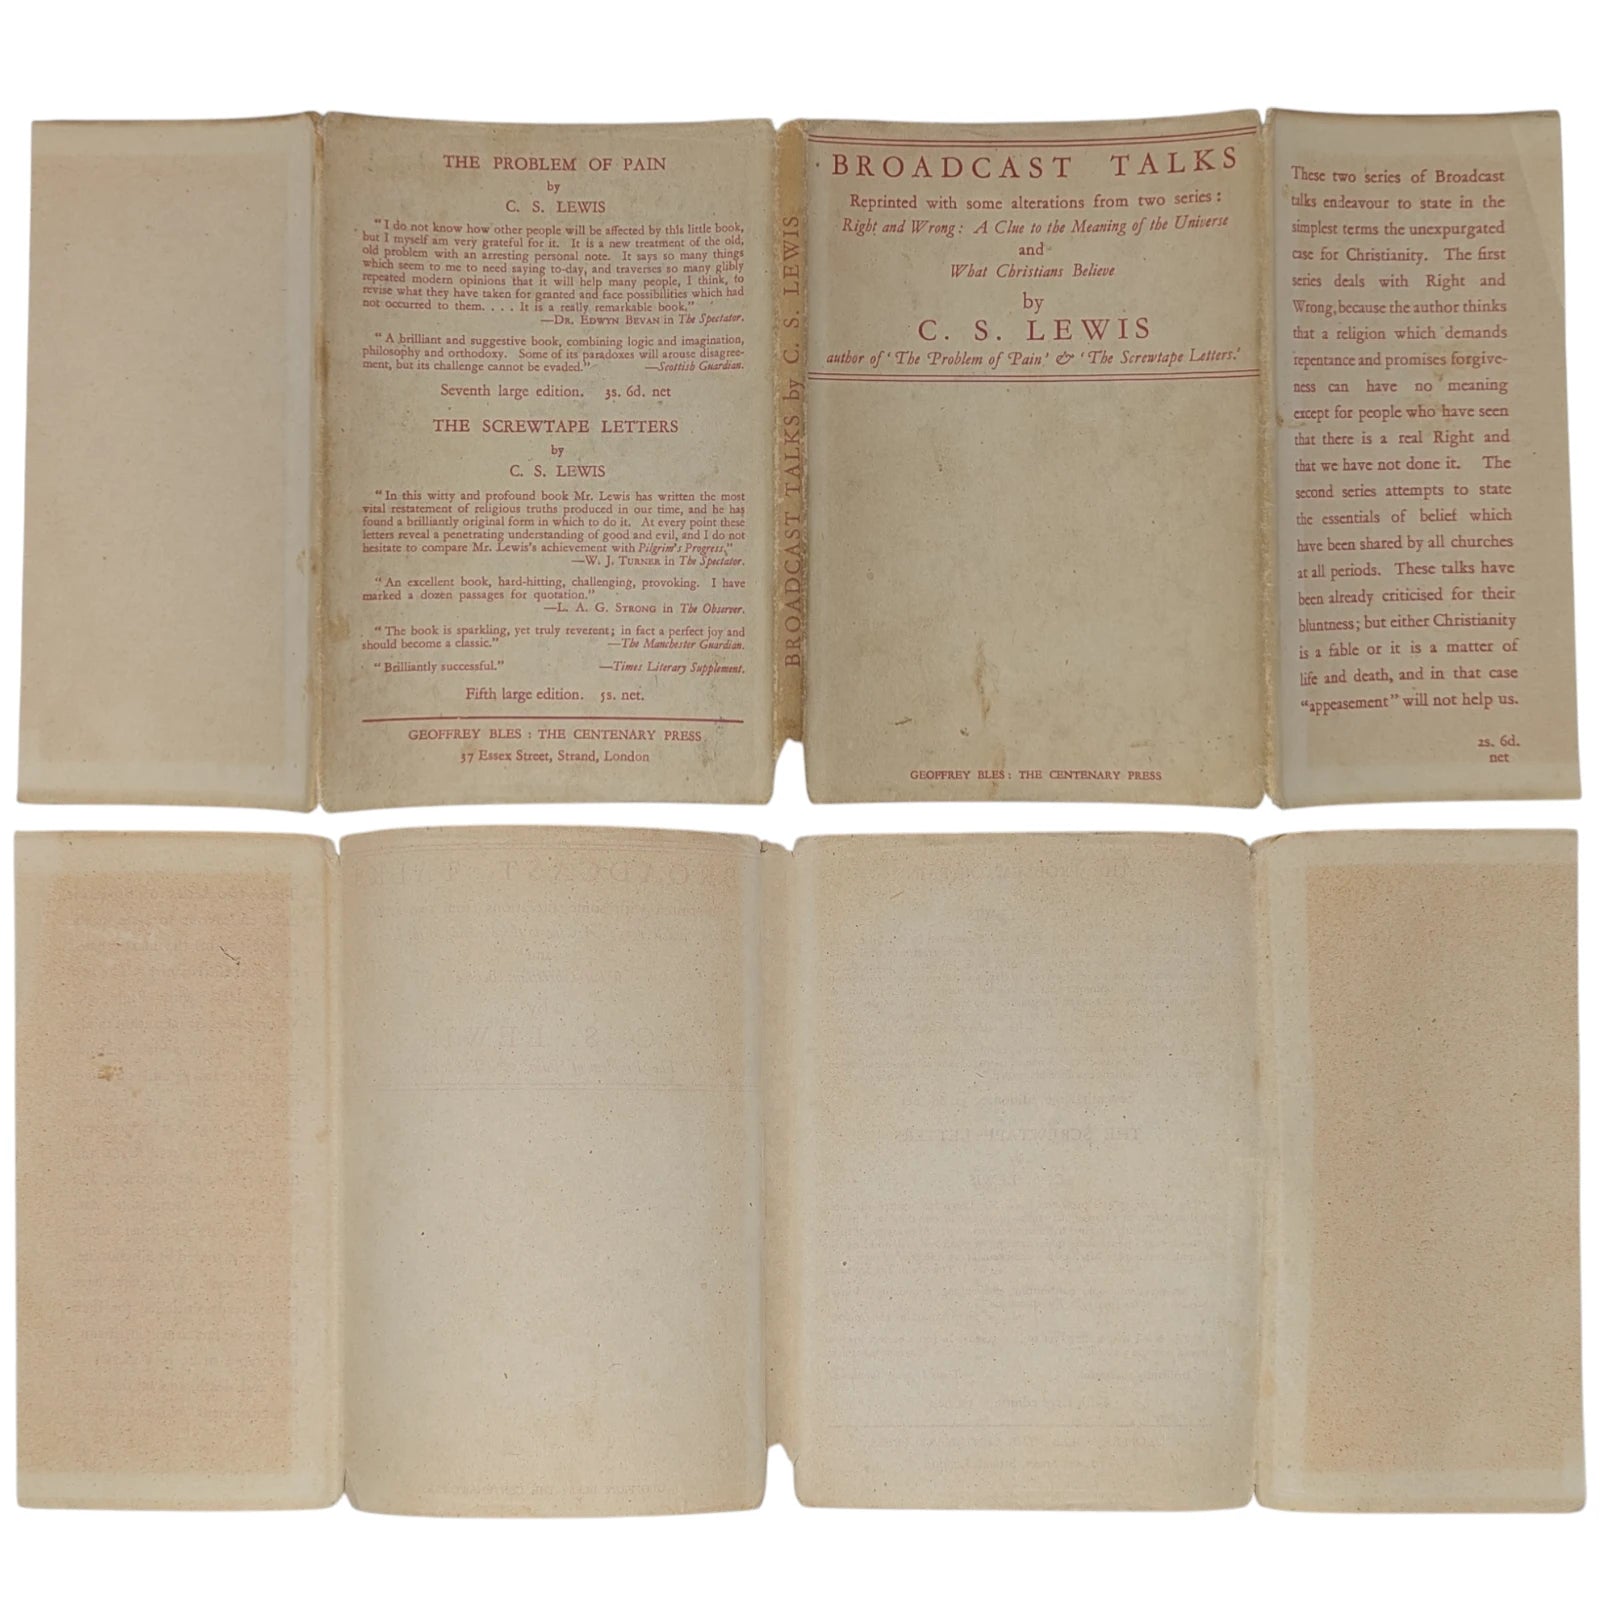 THE PROBLEM OF PAIN
by
C. S. LEWIS
"I do not know how other people will be affected by this little book,
but I myself am very grateful for it. It is a new treatment of the old,
old problem with an arresting personal note. It says so many things
which seem to me to need saying to-day, and traverses so many glibly
repeated modern opinions that it will help many people, I think, to
revise what they have taken for granted and face possibilities which had
not occurred to them. . . . It is a really remarkable book."
—DR. EDWYN BEVAN in The Spectator.
"A brilliant and suggestive book, combining logic and imagination,
philosophy and orthodoxy. Some of its paradoxes will arouse disagree-
ment, but its challenge cannot be evaded." —Scottish Guardian.
Seventh large edition. 3s. 6d. net
THE SCREWTAPE LETTERS
by
C. S. LEWIS
"In this witty and profound book Mr. Lewis has written the most
vital restatement of religious truths produced in our time, and he has
found a brilliantly original form in which to do it. At every point these
letters reveal a penetrating understanding of good and evil, and I do not
hesitate to compare Mr. Lewis's achievement with Pilgrim's Progress."
—W. J. TURNER in The Spectator.
"An excellent book, hard-hitting, challenging, provoking. I have
marked a dozen passages for quotation."
—L. A. G. STRONG in The Observer.
"The book is sparkling, yet truly reverent; in fact a perfect joy and
should become a classic." —The Manchester Guardian.
"Brilliantly successful." —Times Literary Supplement.
Fifth large edition. 5s. net.
GEOFFREY BLES : THE CENTENARY PRESS
37 Essex Street, Strand, London
BROADCAST TALKS by C. S. LEWIS
BROADCAST TALKS
Reprinted with some alterations from two series :
Right and Wrong : A Clue to the Meaning of the Universe
and
What Christians Believe
by
C. S. LEWIS
author of 'The Problem of Pain' & 'The Screwtape Letters.'
GEOFFREY BLES : THE CENTENARY PRESS
These two series of Broadcast
talks endeavour to state in the
simplest terms the unexpurgated
case for Christianity. The first
series deals with Right and
Wrong, because the author thinks
that a religion which demands
repentance and promises forgive-
ness can have no meaning
except for people who have seen
that there is a real Right and
that we have not done it. The
second series attempts to state
the essentials of belief which
have been shared by all churches
at all periods. These talks have
been already criticised for their
bluntness; but either Christianity
is a fable or it is a matter of
life and death, and in that case
"appeasement" will not help us.
2s. 6d.
net